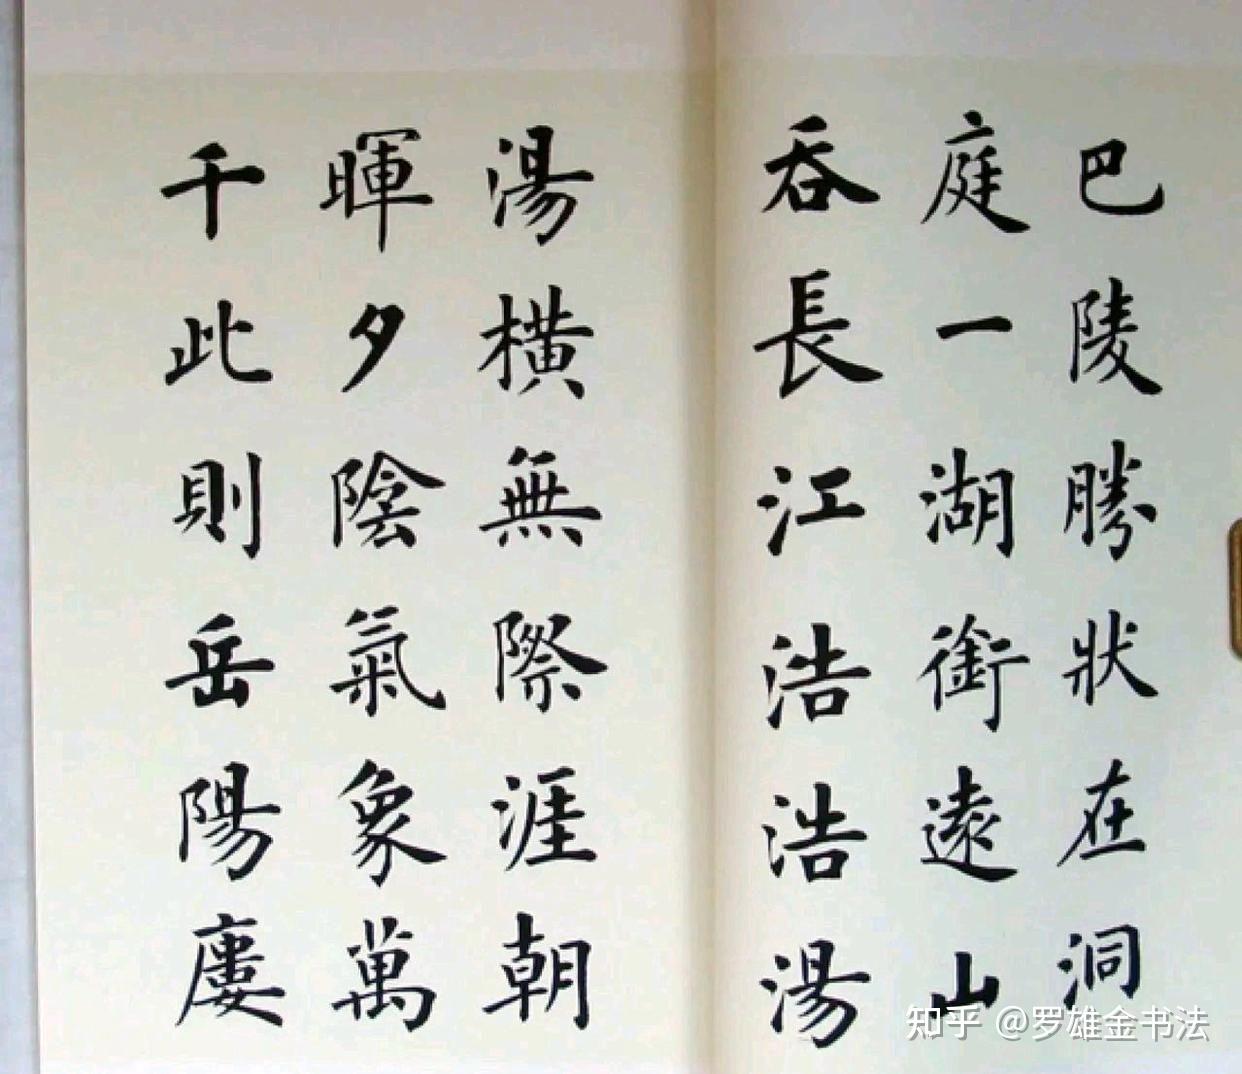 巴陵勝狀在洞
庭一湖銜遠山
吞長江浩浩湯
湯橫無際涯朝
暉夕陰氣象萬
千此則岳陽廔
知乎 @罗雄金书法